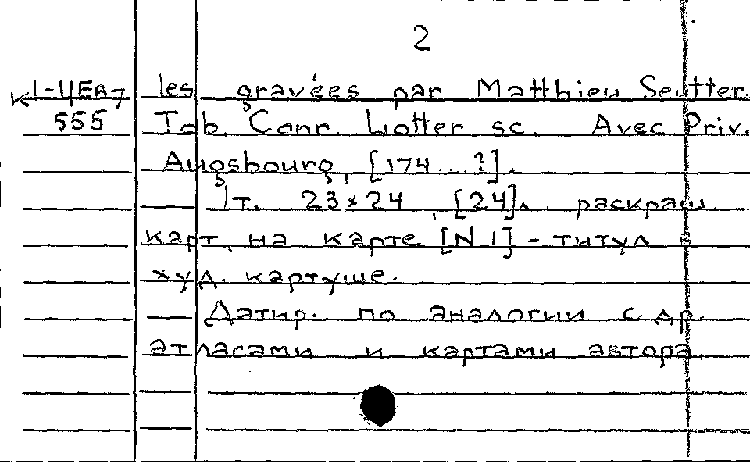 2
К 1-ЦЕВ7 les gravées par Matthieu Seutter.
555 Tob. Conr. Lotter sc. Avec Priv.
Augsbourg, [174...?].
1т. 23×24, [24]л. раскраш.
карт, на карте [N 1] - титул в
худ. картуше.
Датир. по аналогии с др.
атласами и картами автора